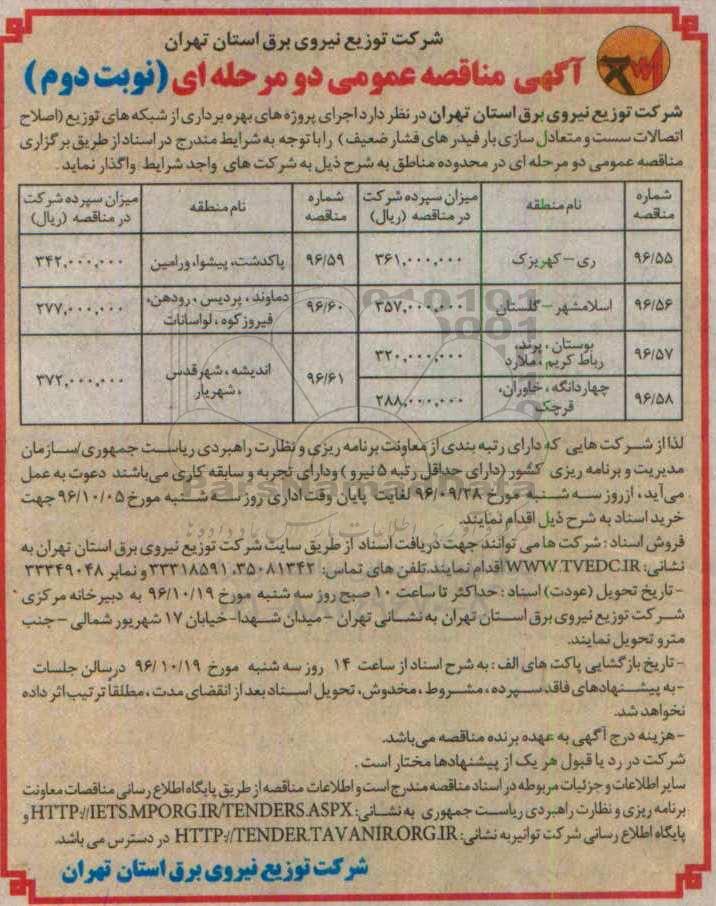 شرکت توزیع نیروی برق استان تهران
آگهی مناقصه عمومی دو مرحله ای (نوبت دوم)
شرکت توزیع نیروی برق استان تهران در نظر دارد اجرای پروژه های بهره برداری از شبکه های توزیع (اصلاح
اتصالات سست و متعادل سازی بار فیدر های فشار ضعیف) را با توجه به شرایط مندرج در اسناد از طریق برگزاری
مناقصه عمومی دو مرحله ای در محدوده مناطق به شرح ذیل به شرکت های واجد شرایط واگذار نماید.
شماره مناقصه | نام منطقه | میزان سپرده شرکت در مناقصه (ریال) | شماره مناقصه | نام منطقه | میزان سپرده شرکت در مناقصه (ریال)
۹۶/۵۵ | ری – کهریزک | ۳۶۱,۰۰۰,۰۰۰ | ۹۶/۵۹ | پاکدشت، پیشوا، ورامین | ۳۴۲,۰۰۰,۰۰۰
۹۶/۵۶ | اسلامشهر – گلستان | ۳۵۷,۰۰۰,۰۰۰ | ۹۶/۶۰ | دماوند، پردیس، رودهن، فیروزکوه، لواسانات | ۲۷۷,۰۰۰,۰۰۰
۹۶/۵۷ | بوستان، پرند، رباط کریم، ملارد | ۳۲۰,۰۰۰,۰۰۰ | ۹۶/۶۱ | اندیشه، شهرقدس، شهریار | ۳۷۲,۰۰۰,۰۰۰
۹۶/۵۸ | چهاردانگه، خاوران، قرچک | ۲۸۸,۰۰۰,۰۰۰
لذا از شرکت هایی که دارای رتبه بندی از معاونت برنامه ریزی و نظارت راهبردی ریاست جمهوری/سازمان
مدیریت و برنامه ریزی کشور (دارای حداقل رتبه ۵ نیرو) ودارای تجربه و سابقه کاری می‌باشند دعوت به عمل
می‌آید، ازروز سه شنبه مورخ ۹۶/۰۹/۲۸ لغایت پایان وقت اداری روز سه شنبه مورخ ۹۶/۱۰/۰۵ جهت
خرید اسناد به شرح ذیل اقدام نمایند.
فروش اسناد: شرکت ها می توانند جهت دریافت اسناد از طریق سایت شرکت توزیع نیروی برق استان تهران به
نشانی: WWW.TVEDC.IR اقدام نمایند. تلفن های تماس: ۳۵۰۸۱۳۴۲، ۳۳۳۱۸۵۹۱ و نمابر ۳۳۳۴۹۰۴۸
- تاریخ تحویل (عودت) اسناد: حداکثر تا ساعت ۱۰ صبح روز سه شنبه مورخ ۹۶/۱۰/۱۹ به دبیرخانه مرکزی
شرکت توزیع نیروی برق استان تهران به نشانی تهران – میدان شهدا- خیابان ۱۷ شهریور شمالی – جنب
مترو تحویل نمایند.
- تاریخ بازگشایی پاکت های الف: به شرح اسناد از ساعت ۱۴ روز سه شنبه مورخ ۹۶/۱۰/۱۹ درسالن جلسات
- به پیشنهادهای فاقد سپرده، مشروط، مخدوش، تحویل اسناد بعد از انقضای مدت، مطلقاً ترتیب اثر داده
نخواهد شد.
- هزینه درج آگهی به عهده برنده مناقصه می‌باشد.
شرکت در رد یا قبول هر یک از پیشنهادها مختار است.
سایر اطلاعات و جزئیات مربوطه در اسناد مناقصه مندرج است و اطلاعات مناقصه از طریق پایگاه اطلاع رسانی مناقصات معاونت
برنامه ریزی و نظارت راهبردی ریاست جمهوری به نشانی: HTTP://IETS.MPORG.IR/TENDERS.ASPX و
پایگاه اطلاع رسانی شرکت توانیر به نشانی: HTTP://TENDER.TAVANIR.ORG.IR در دسترس می باشد.
شرکت توزیع نیروی برق استان تهران